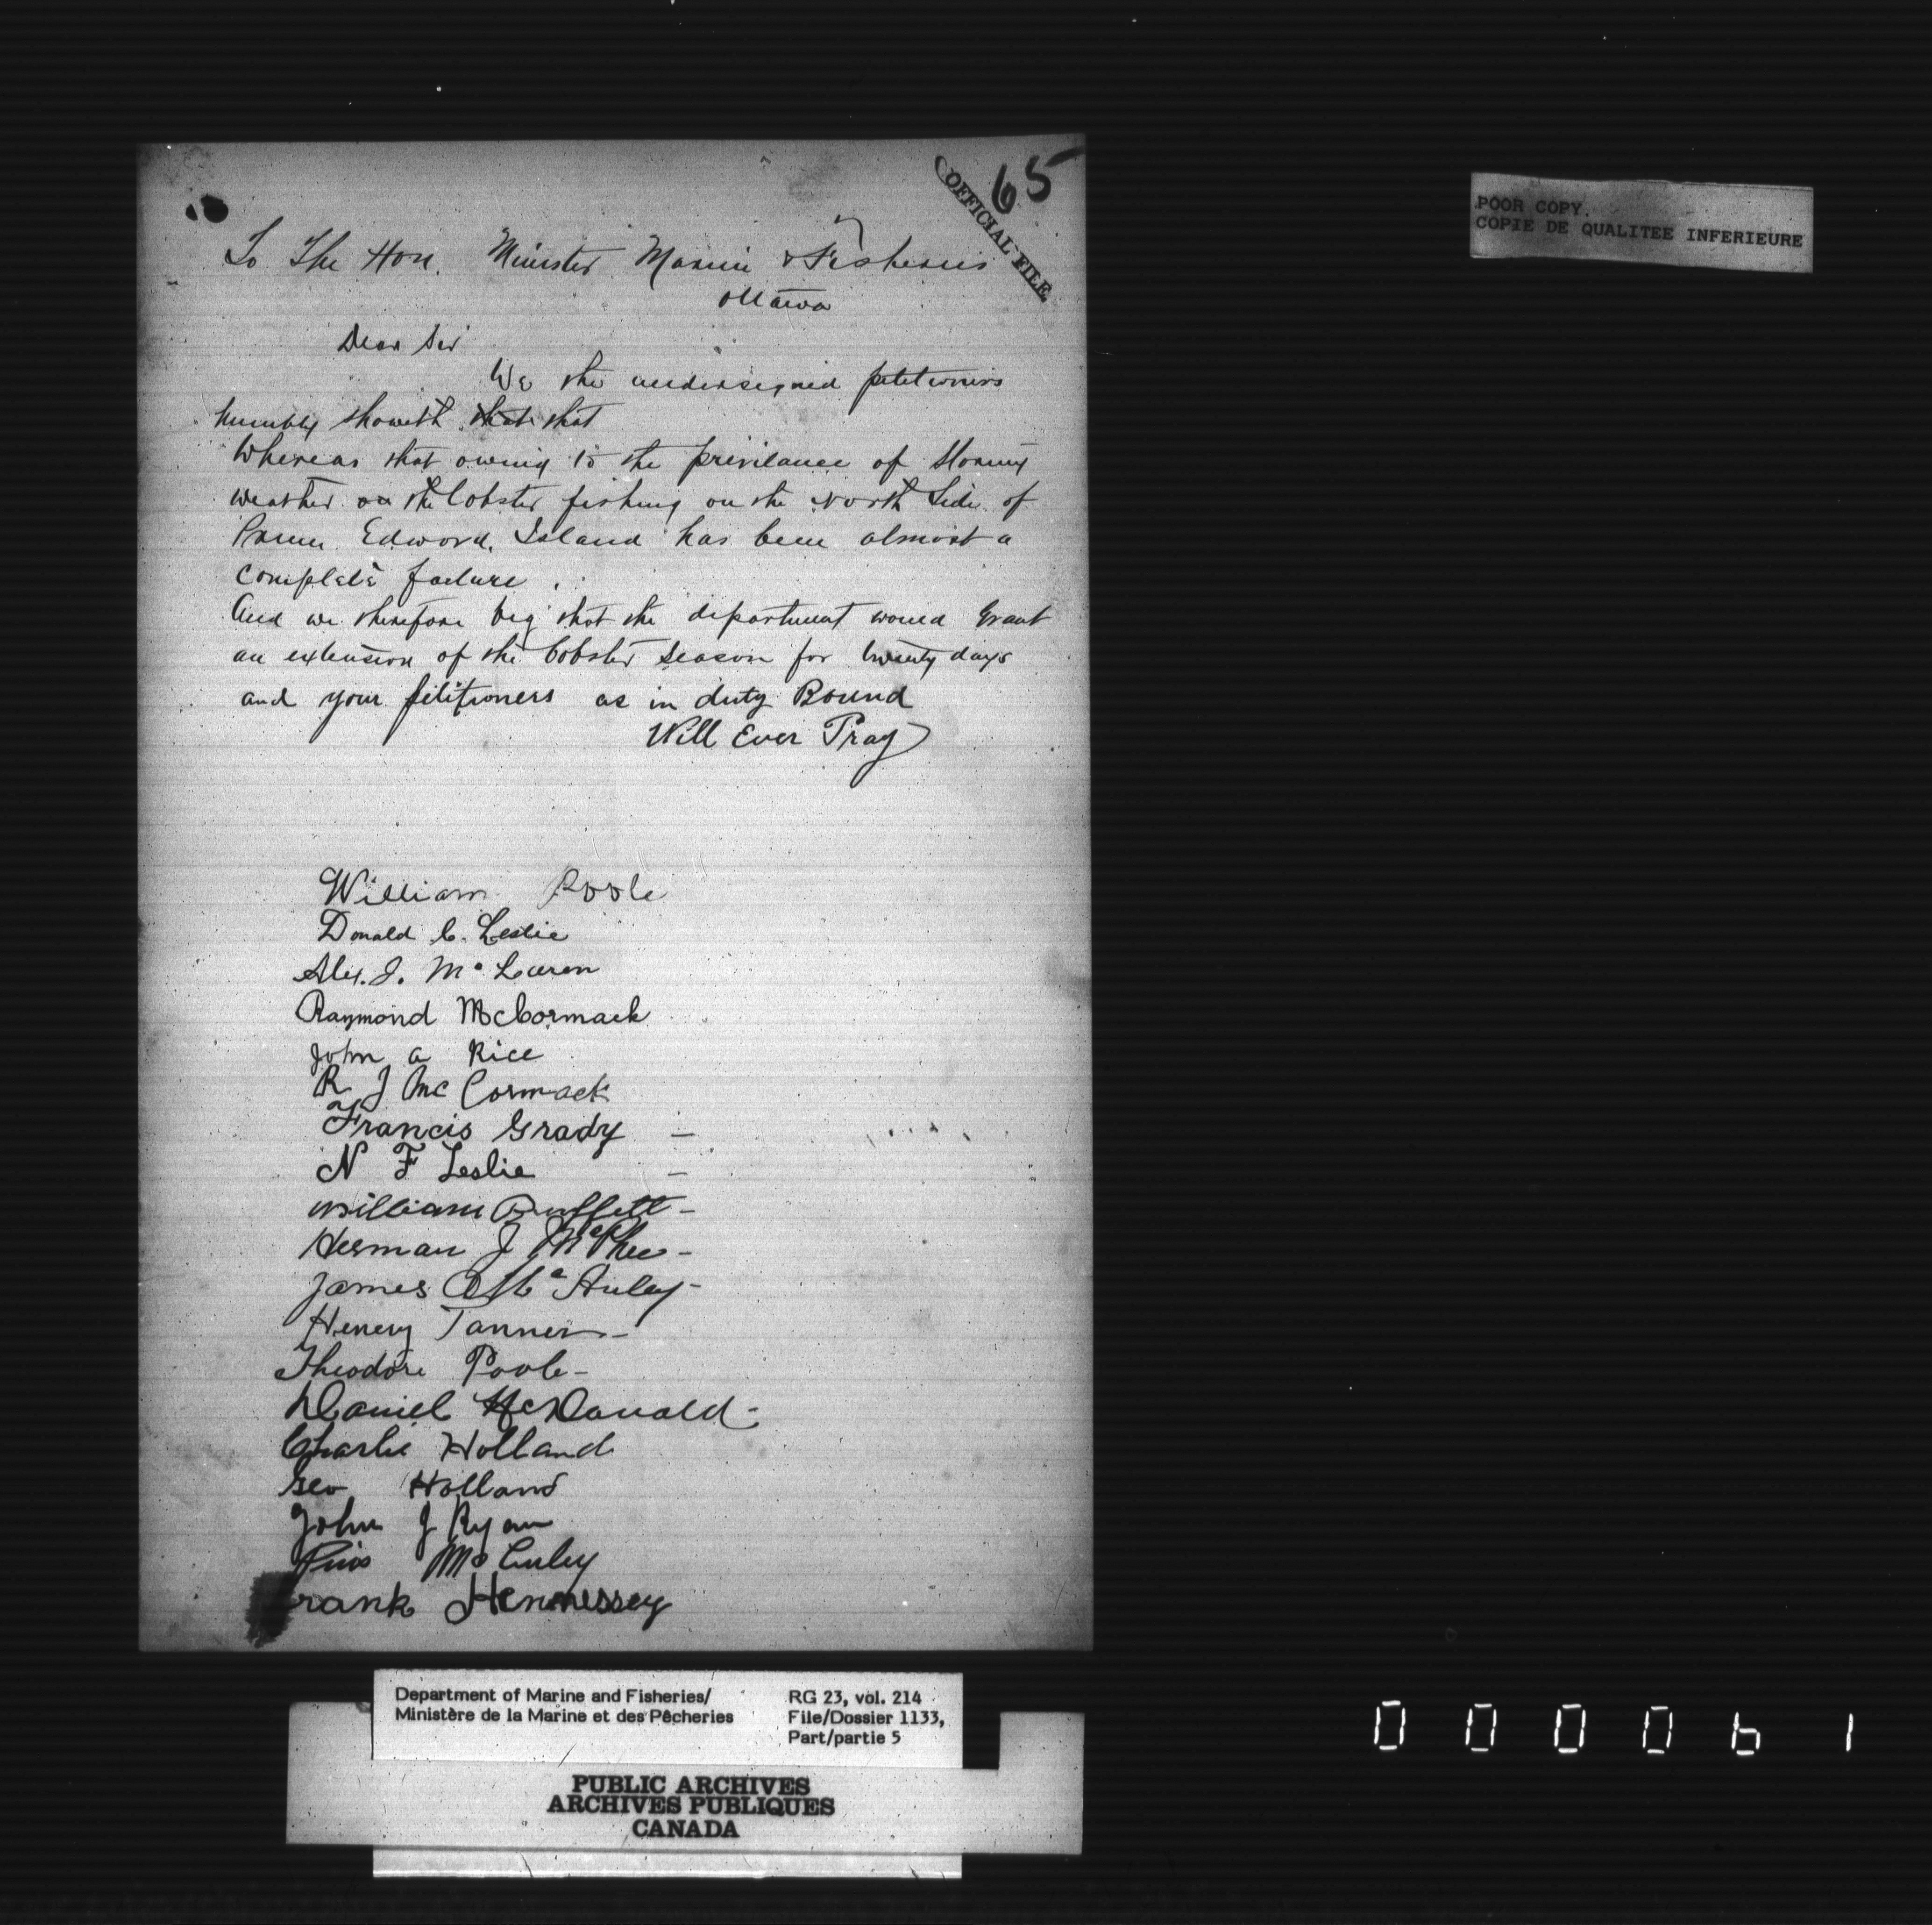 65
OFFICIAL FILE
POOR COPY.
COPIE DE QUALITEE INFERIEURE
To The Hon. Minister Marine & Fisheries
Ottawa
Dear Sir
We the undersigned petitioners
humbly showeth that that
Whereas that owing to the privilance of Stormy
weather on the lobster fishing on the North Side of
Prince Edward Island has been almost a
complete failure.
And we therefore beg that the department would Grant
an extension of the lobster season for twenty days
and your petitioners as in duty Bound
Will Ever Pray
William Poole
Donald C. Leslie
Alex. J. Mc Laren
Raymond McCormack
John A Rice
R J Mc Cormack
Francis Grady —
N F Leslie —
William Buffett —
Herman J McPhee —
James A Mc Auley —
Henery Tanner —
Theodore Poole —
Daniel McDonald —
Charlie Holland
Geo Holland
John J Ryan
Pius
Frank Hennessey
Department of Marine and Fisheries/
Ministère de la Marine et des Pêcheries
RG 23, vol. 214
File/Dossier 1133,
Part/partie 5
PUBLIC ARCHIVES
ARCHIVES PUBLIQUES
CANADA
000061